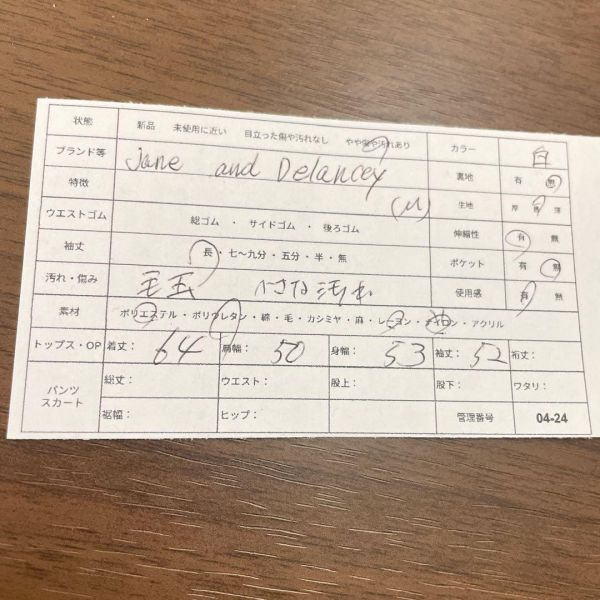 状態 新品 未使用に近い 目立った傷や汚れなし やや傷や汚れあり カラー 白
ブランド等 Jane and Delancey 裏地 有 無
特徴 (M) 生地 厚 普 薄
ウエストゴム 総ゴム ・ サイドゴム ・ 後ろゴム 伸縮性 有 無
袖丈 長・七〜九分・五分・半・無 ポケット 有 無
汚れ・傷み 毛玉 汚れ 使用感 有 無
素材 ポリエステル・ポリウレタン・綿・毛・カシミヤ・麻・レーヨン・ナイロン・アクリル
トップス・OP 着丈: 64 肩幅: 50 身幅: 53 袖丈: 52 裄丈:
パンツ スカート 総丈: ウエスト: 股上: 股下: ワタリ:
裾幅: ヒップ: 管理番号 04-24